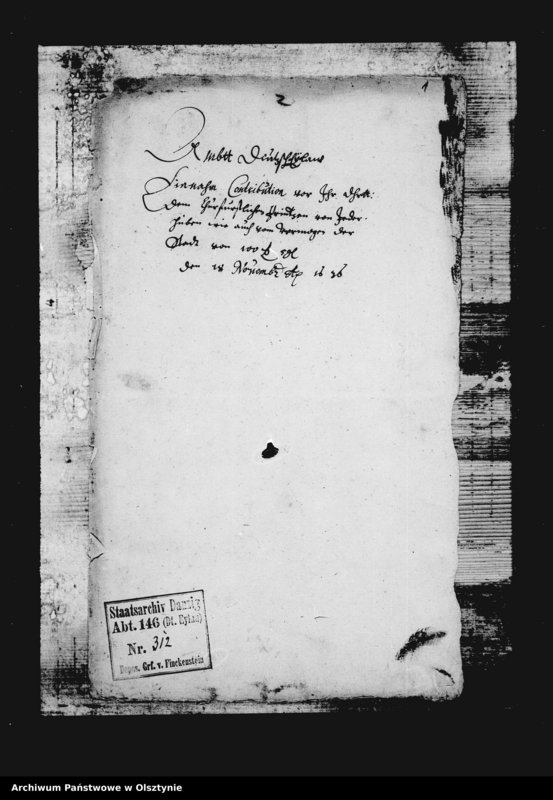 1
2
Ambtt Deutscheylaw
Einnahm Contribution vor Ihr
Dem Churfürstlichen Printzen von Jeder
huben wie auch vom vermogen der
Stadt von 100
den 18 Novembr Ao 1636
Staatsarchiv Danzig
Abt. 146 (Dt. Eylau)
Nr. 312
Depos. Grf. v. Finckenstein
Archiwum Państwowe w Olsztynie